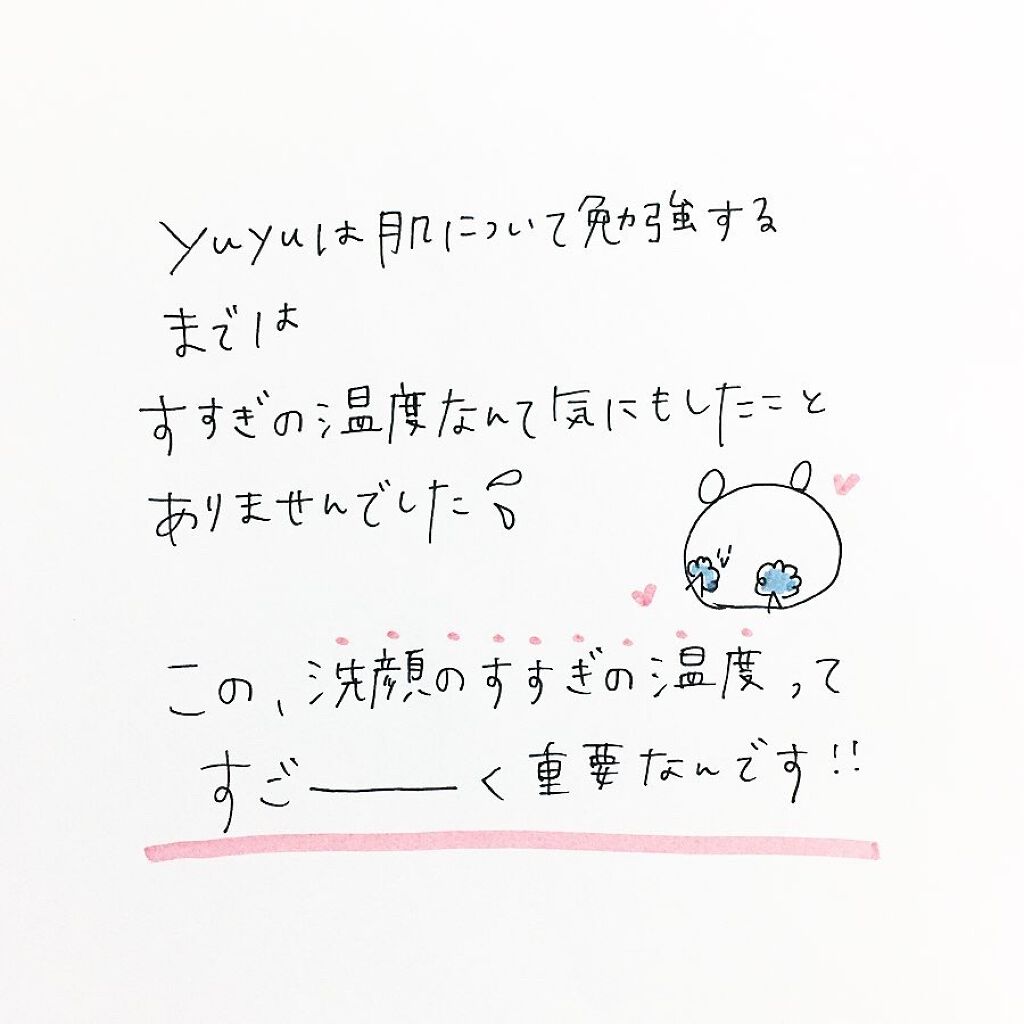 yuyuは肌について勉強する
までは
すすぎの温度なんて気にもしたこと
ありませんでした
この、洗顔のすすぎの温度って
すご――く重要なんです!!